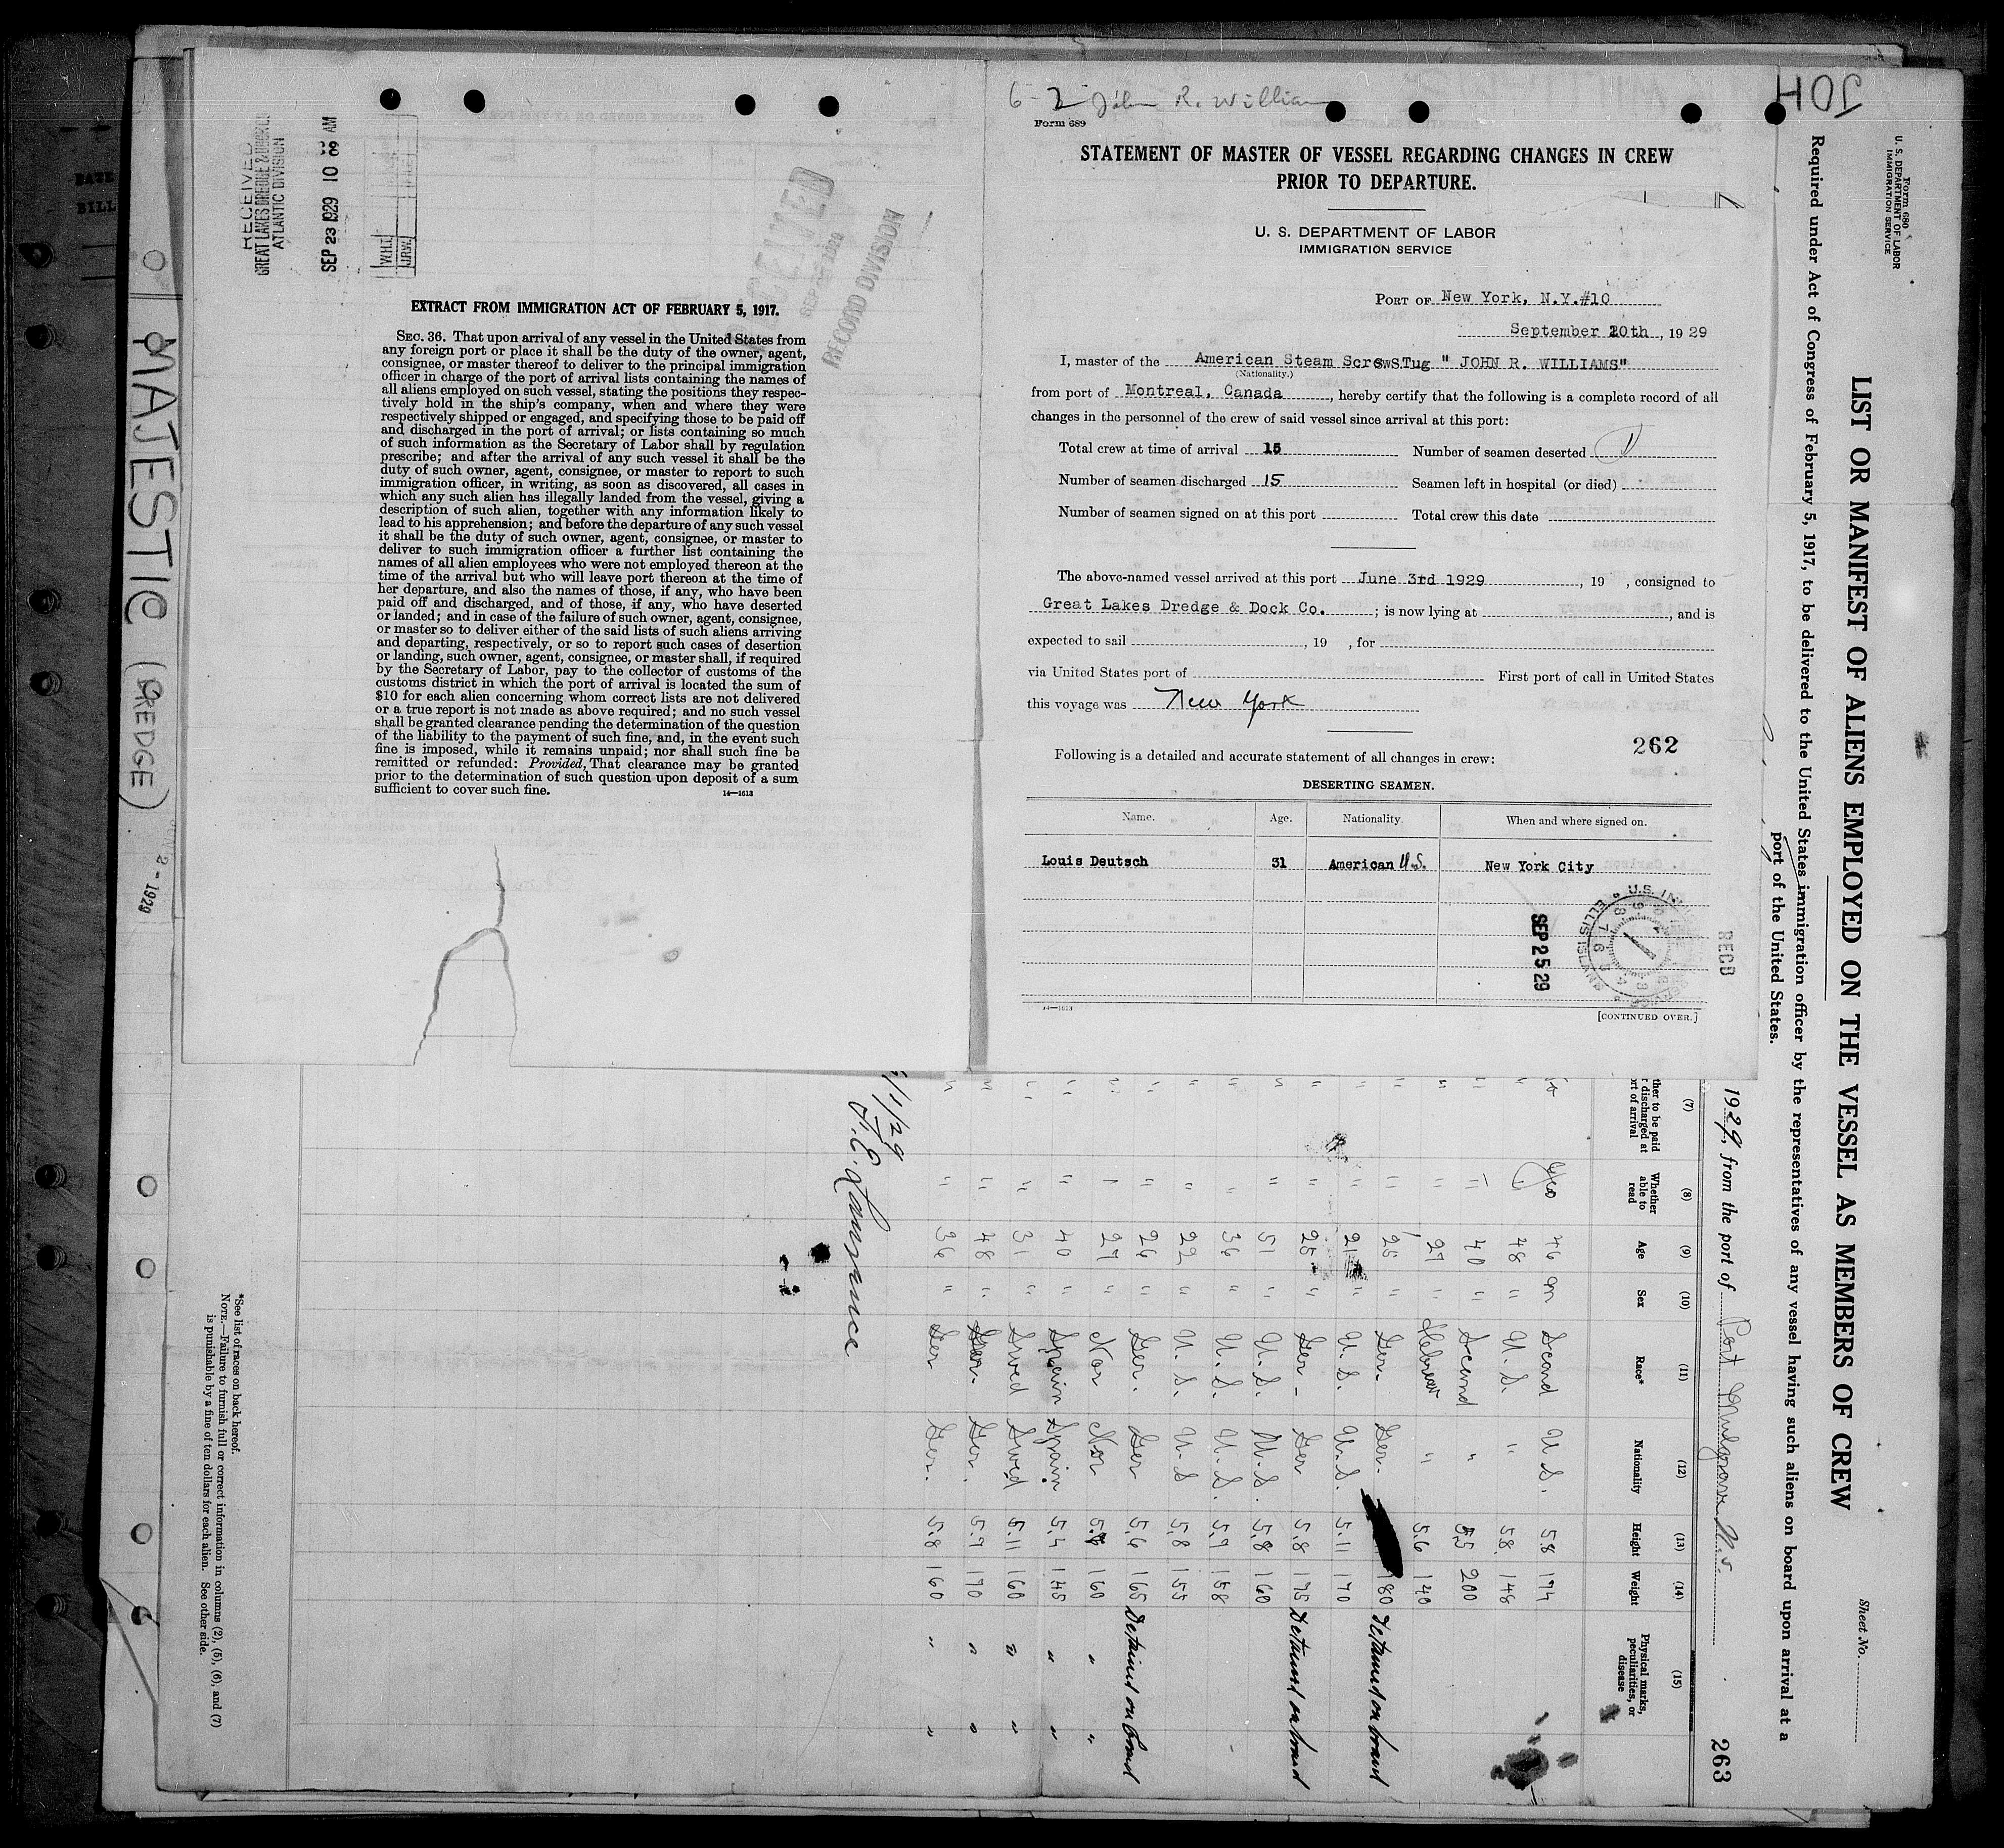 MAJESTIC (DREDGE)
2 - 1929
RECEIVED
GREAT LAKES DREDGE & DOCK CO
ATLANTIC DIVISION
SEP 23 1929 10 38 AM
W.H.L.
J.R.W.
RECEIVED
SEP
RECORD DIVISION
EXTRACT FROM IMMIGRATION ACT OF FEBRUARY 5, 1917.
SEC. 36. That upon arrival of any vessel in the United States from
any foreign port or place it shall be the duty of the owner, agent,
consignee, or master thereof to deliver to the principal immigration
officer in charge of the port of arrival lists containing the names of
all aliens employed on such vessel, stating the positions they respec-
tively hold in the ship's company, when and where they were
respectively shipped or engaged, and specifying those to be paid off
and discharged in the port of arrival; or lists containing so much
of such information as the Secretary of Labor shall by regulation
prescribe; and after the arrival of any such vessel it shall be the
duty of such owner, agent, consignee, or master to report to such
immigration officer, in writing, as soon as discovered, all cases in
which any such alien has illegally landed from the vessel, giving a
description of such alien, together with any information likely to
lead to his apprehension; and before the departure of any such vessel
it shall be the duty of such owner, agent, consignee, or master to
deliver to such immigration officer a further list containing the
names of all alien employees who were not employed thereon at the
time of the arrival but who will leave port thereon at the time of
her departure, and also the names of those, if any, who have been
paid off and discharged, and of those, if any, who have deserted
or landed; and in case of the failure of such owner, agent, consignee,
or master so to deliver either of the said lists of such aliens arriving
and departing, respectively, or so to report such cases of desertion
or landing, such owner, agent, consignee, or master shall, if required
by the Secretary of Labor, pay to the collector of customs of the
customs district in which the port of arrival is located the sum of
$10 for each alien concerning whom correct lists are not delivered
or a true report is not made as above required; and no such vessel
shall be granted clearance pending the determination of the question
of the liability to the payment of such fine, and, in the event such
fine is imposed, while it remains unpaid; nor shall such fine be
remitted or refunded: Provided, That clearance may be granted
prior to the determination of such question upon deposit of a sum
sufficient to cover such fine.
14—1613
6-2 John R. William
Form 689
STATEMENT OF MASTER OF VESSEL REGARDING CHANGES IN CREW
PRIOR TO DEPARTURE.
U. S. DEPARTMENT OF LABOR
IMMIGRATION SERVICE
PORT OF New York, N.Y.#10
September 20th, 1929
I, master of the American Steam Screw S.Tug " JOHN R. WILLIAMS"
(Nationality.)
from port of Montreal, Canada, hereby certify that the following is a complete record of all
changes in the personnel of the crew of said vessel since arrival at this port:
Total crew at time of arrival 15 Number of seamen deserted 1
Number of seamen discharged 15 Seamen left in hospital (or died)
Number of seamen signed on at this port Total crew this date
The above-named vessel arrived at this port June 3rd 1929, 19 , consigned to
Great Lakes Dredge & Dock Co. ; is now lying at , and is
expected to sail , 19 , for
via United States port of First port of call in United States
this voyage was New York
262
Following is a detailed and accurate statement of all changes in crew:
DESERTING SEAMEN.
Name. Age. Nationality. When and where signed on.
Louis Deutsch 31 American U.S. New York City
SEP 25 29
RECD
14—1613
[CONTINUED OVER.]
Form 680
U. S. DEPARTMENT OF LABOR
IMMIGRATION SERVICE
JOH
LIST OR MANIFEST OF ALIENS EMPLOYED ON THE VESSEL AS MEMBERS OF CREW
Sheet No.
Required under Act of Congress of February 5, 1917, to be delivered to the United States immigration officer by the representatives of any vessel having such aliens on board upon arrival at a
port of the United States.
1929, from the port of Port
263
(7) (8) (9) (10) (11) (12) (13) (14) (15)
Whether able to read Age Sex Race* Nationality Height Weight Physical marks, peculiarities, or disease
Yes 46 m Scand U.S. 5.8 174
" 48 " U.S. " 5.8 148
" 40 " Scand " 5.5 200
" 27 " Hebrew " 5.6 140
" 25 " Ger. Ger. 180 Detained on board
" 21 " U.S. U.S. 5.11 170
" 25 " Ger - Ger 5.8 175 Detained on board
" 51 " U.S. U.S. 5.8 160
" 36 " U.S. U.S. 5.9 158
" 22 " U.S. U.S 5.8 155
" 26 " Ger. Ger 5.6 165 Detained on board
" 27 " Nor Nor 160 " "
" 40 " Spain Spain 5.4 145 " "
" 31 " Swed Swed 5.11 160 " "
" 48 " Ger. Ger. 5.9 170 " "
" 36 " Ger Ger. 5.8 160 " "
1/29
H.E. Lawrence
*See list of races on back hereof.
NOTE.—Failure to furnish full or correct information in columns (2), (5), (6), and (7)
is punishable by a fine of ten dollars for each alien. See other side.